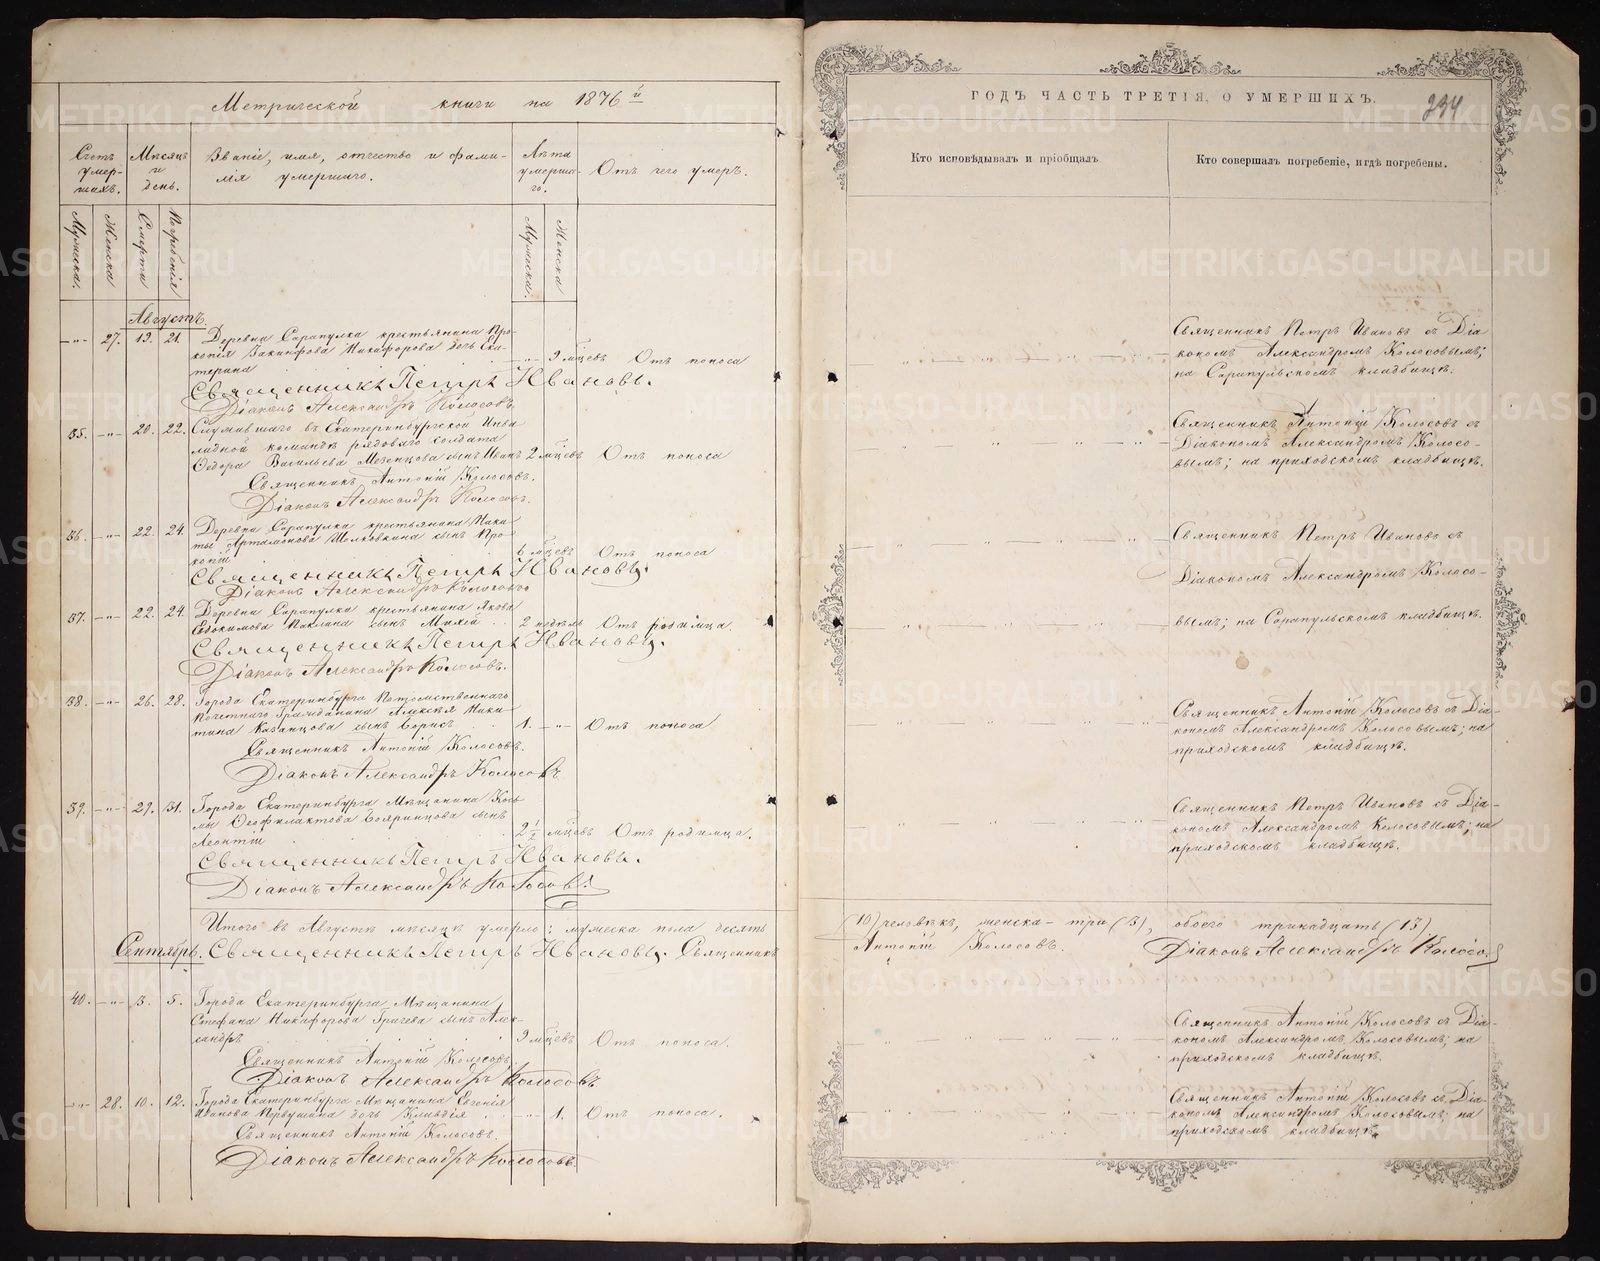 Метрической книги на 1876 й
Счетъ умер-шихъ.
Мѣсяцъ и день.
Званіе, имя, отчество и фами-
лія умершаго.
Лѣта умерша-го.
Отъ чего умеръ.
Мужеска.
Женска
Смерти
Погребенія
Мужеска.
Женска
Августъ.
27. 19. 21. Деревни Сарапулка крестьянина Про-
копія Никифорова дочь Ека-
терина 9 мѣсѣвъ Отъ поноса
Священникъ Петръ Ивановъ.
Діаконъ Александръ Колосовъ.
35. 20. 22. Служившаго въ Екатеринбургской Инва
лидной командѣ рядоваго солдата
Ѳедора Васильева Мезенцова сынъ Иванъ 2 мѣсѣвъ Отъ поноса
Священникъ Антоній Колосовъ.
Діаконъ Александръ Колосовъ.
36. 22. 24. Деревни Сарапулка крестьянина Ники
ты Артамонова Шелковкина сынъ Про
копій 6 мѣсѣвъ Отъ поноса
Священникъ Петръ Ивановъ.
Діаконъ Александръ Колосовъ
37. 22. 24. Деревни Сарапулка крестьянина Якова
Евдокимова сынъ 2 недѣль Отъ родимца.
Священникъ Петръ Ивановъ.
Діаконъ Александръ Колосовъ.
38. 26. 28. Города Екатеринбурга Потомственнаго
Почетнаго Гражданина Алексѣя Ники
тина Казанцова сынъ Борисъ 1. Отъ поноса
Священникъ Антоній Колосовъ.
Діаконъ Александръ Колосовъ
39. 29. 31. Города Екатеринбурга Мѣщанина Козь
мы Ѳеофилактова Бояринцова сынъ
Леонтій 2 1/2 мѣсѣвъ Отъ родимца.
Священникъ Петръ Ивановъ.
Діаконъ Александръ Колосовъ.
Итого въ Августѣ мѣсяцѣ умерло: мужеска пола десять
Сентябрь. Священникъ Петръ Ивановъ. Священникъ
40. 3. 5. Города Екатеринбурга Мѣщанина
Стефана Никифорова Грачева сынъ Алек-
сандръ 9 мѣсѣвъ Отъ поноса.
Священникъ Антоній Колосовъ
Діаконъ Александръ Колосовъ
28. 10. 12. Города Екатеринбурга Мѣщанина Евгенія
Иванова Первушина дочь Клавдія 1. Отъ поноса.
Священникъ Антоній Колосовъ.
Діаконъ Александръ Колосовъ.
ГОДЪ ЧАСТЬ ТРЕТІЯ, О УМЕРШИХЪ.
234
Кто исповѣдывалъ и пріобщалъ
Кто совершалъ погребеніе, и гдѣ погребены.
Священникъ Петръ Ивановъ съ Діа
кономъ Александромъ Колосовымъ;
на Сарапульскомъ кладбищѣ.
Священникъ Антоній Колосовъ съ
Діакономъ Александромъ Колосо-
вымъ; на приходскомъ кладбищѣ.
Священникъ Петръ Ивановъ съ
Діакономъ Александромъ Колосо-
вымъ; на Сарапульскомъ кладбищѣ.
Священникъ Антоній Колосовъ съ Діа-
кономъ Александромъ Колосовымъ; на
приходскомъ кладбищѣ.
Священникъ Петръ Ивановъ съ Діа-
кономъ Александромъ Колосовымъ; на
приходскомъ кладбищѣ.
(10) человѣкъ, женска- три (3), обоего тринадцать (13)
Антоній Колосовъ. Діаконъ Александръ Колосовъ
Священникъ Антоній Колосовъ съ Діа-
кономъ Александромъ Колосовымъ; на
приходскомъ кладбищѣ.
Священникъ Антоній Колосовъ съ Діа-
кономъ Александромъ Колосовымъ на
приходскомъ кладбищѣ.
METRIKI.GASO-URAL.RU